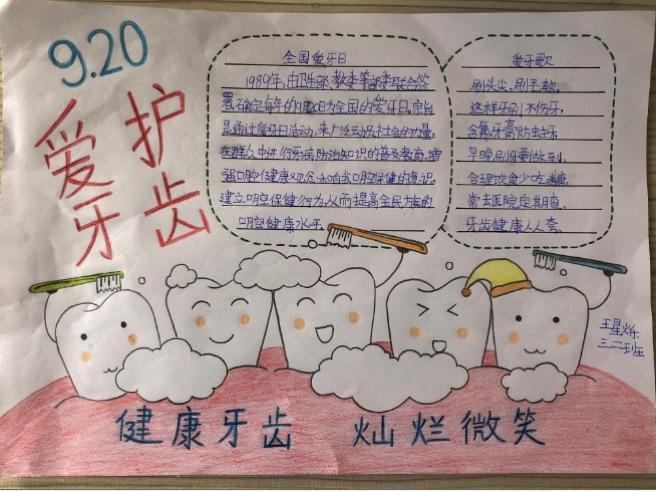 9.20
爱护
牙齿
全国爱牙日
1989年,由卫生部、教委等部委联合签
署,确定每年的9月20日为全国的爱牙日。宗旨
是通过爱牙日活动,来广泛动员社会的力量,
在群人中进行牙病防治知识的普及教育,增
强口腔健康观念和自我口腔保健的意识,
建立口腔保健行为,从而提高全民方的
口腔健康水平。
爱牙歌
刷头尖,刷毛软,
这样牙刷不伤牙,
含氟牙膏防蛀牙
早晚刷牙要做到,
合理饮食少吃糖,
常去医院定期查,
牙齿健康人人夸。
王星烁
三二班
健康牙齿 灿烂微笑